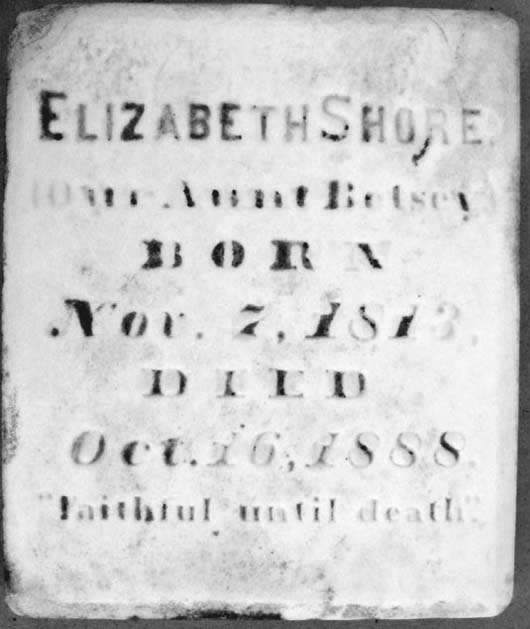 ELIZABETH SHORE.
(Our Aunt Betsey)
BORN
Nov. 7, 1813,
DIED
Oct. 16, 1888.
"Faithful until death".